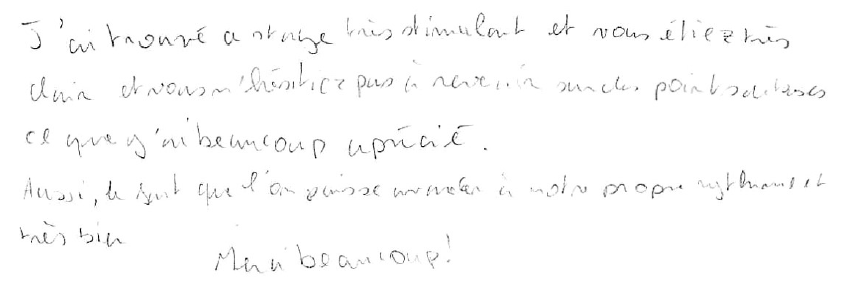 J'ai trouvé ce stage très stimulant et vous étiez très
clair et vous n'hésitiez pas à revenir sur des points
ce que j'ai beaucoup aprécié.
Aussi, le fait que l'on puisse avancer à notre propre rythme est
très bien
Merci beaucoup!